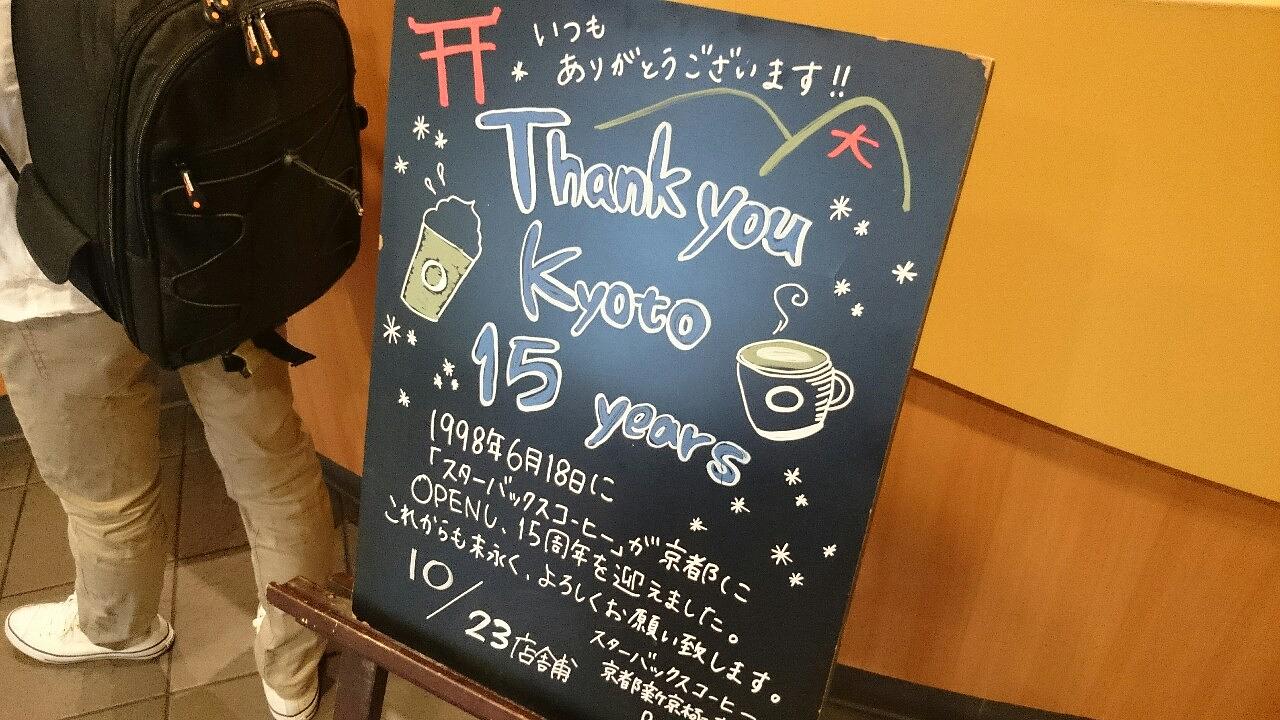 いつも
ありがとうございます!!
大
Thank you
Kyoto
15
years
1998年6月18日に
「スターバックスコーヒー」が京都に
OPENし、15周年を迎えました。
これからも末永く、よろしくお願い致します。
10/23店舗
スターバックスコーヒー
京都新京極